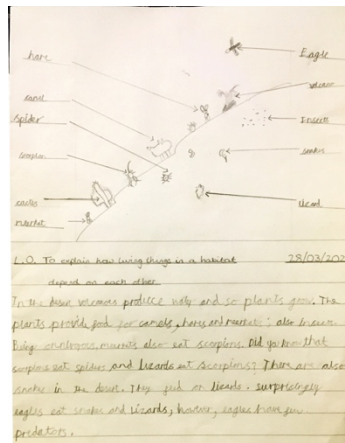 hare
camel
spider
scorpion
cactus
meerkat
Eagle
volcano
Insects
snakes
lizard
L.O. To explain how living things in a habitat 28/03/202
depend on each other
In the desert volcanoes produce and so plants grow. The
plants provide food for camels, hares and meerkat; also insects.
Being omnivores, meerkats also eat scorpions. Did you know that
scorpions eat spiders and lizards eat scorpions? There are also
snakes in the desert. They feed on lizards. Surprisingly
eagles eat snakes and lizards, however, eagles have few
predators.